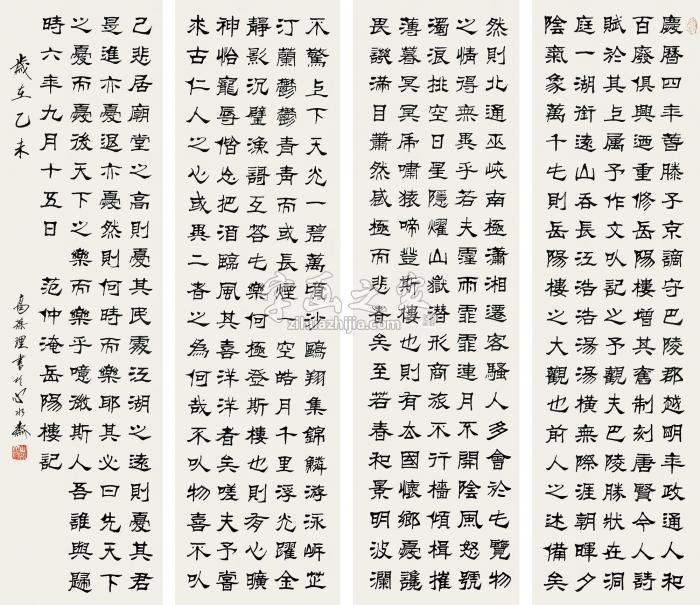 慶曆四年善滕子京謫守巴陵郡越明年政通人和
百廢俱興迺重修岳陽樓增其舊制刻唐賢今人詩
賦於其上屬予作文以記之予觀夫巴陵勝狀在洞
庭一湖銜遠山吞長江浩浩湯湯橫無際涯朝暉夕
陰氣象萬千此則岳陽樓之大觀也前人之述備矣
然則北通巫峽南極瀟湘遷客騷人多會於此覽物
之情得無異乎若夫霪雨霏霏連月不開陰風怒號
濁浪排空日星隱燿山嶽潛形商旅不行檣傾楫摧
薄暮冥冥虎嘯猿啼登斯樓也則有去國懷鄉憂讒
畏譏滿目蕭然感極而悲者矣至若春和景明波瀾
不驚上下天光一碧萬頃沙鷗翔集錦鱗游泳岸芷
汀蘭鬱鬱青青而或長煙一空皓月千里浮光躍金
靜影沉璧漁歌互答此樂何極登斯樓也則有心曠
神怡寵辱偕忘把酒臨風其喜洋洋者矣嗟夫予嘗
求古仁人之心或異二者之為何哉不以物喜不以
己悲居廟堂之高則憂其民處江湖之遠則憂其君
是進亦憂退亦憂然則何時而樂耶其必曰先天下
之憂而憂後天下之樂而樂乎噫微斯人吾誰與歸
時六年九月十五日 范仲淹岳陽樓記
歲在乙未 書於
字画之家
zihuazhijia.com